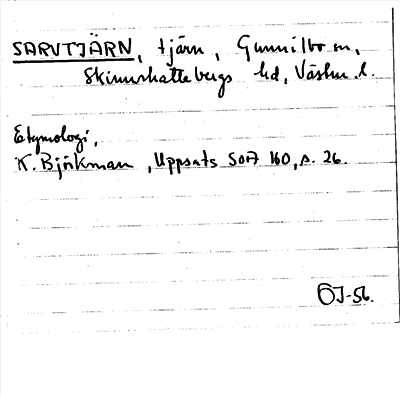 SARVTJÄRN, tjärn, Gunnilbo sn,
Skinnskattebergs hd, Västm. l.
Etymologi,
K. Björkman, Uppsats SOA 160, s. 26.
OJ-56.